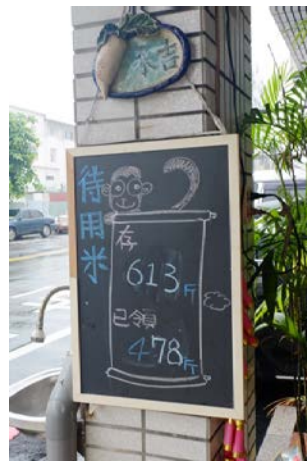 永吉
待用米
存
613斤
已領
478斤